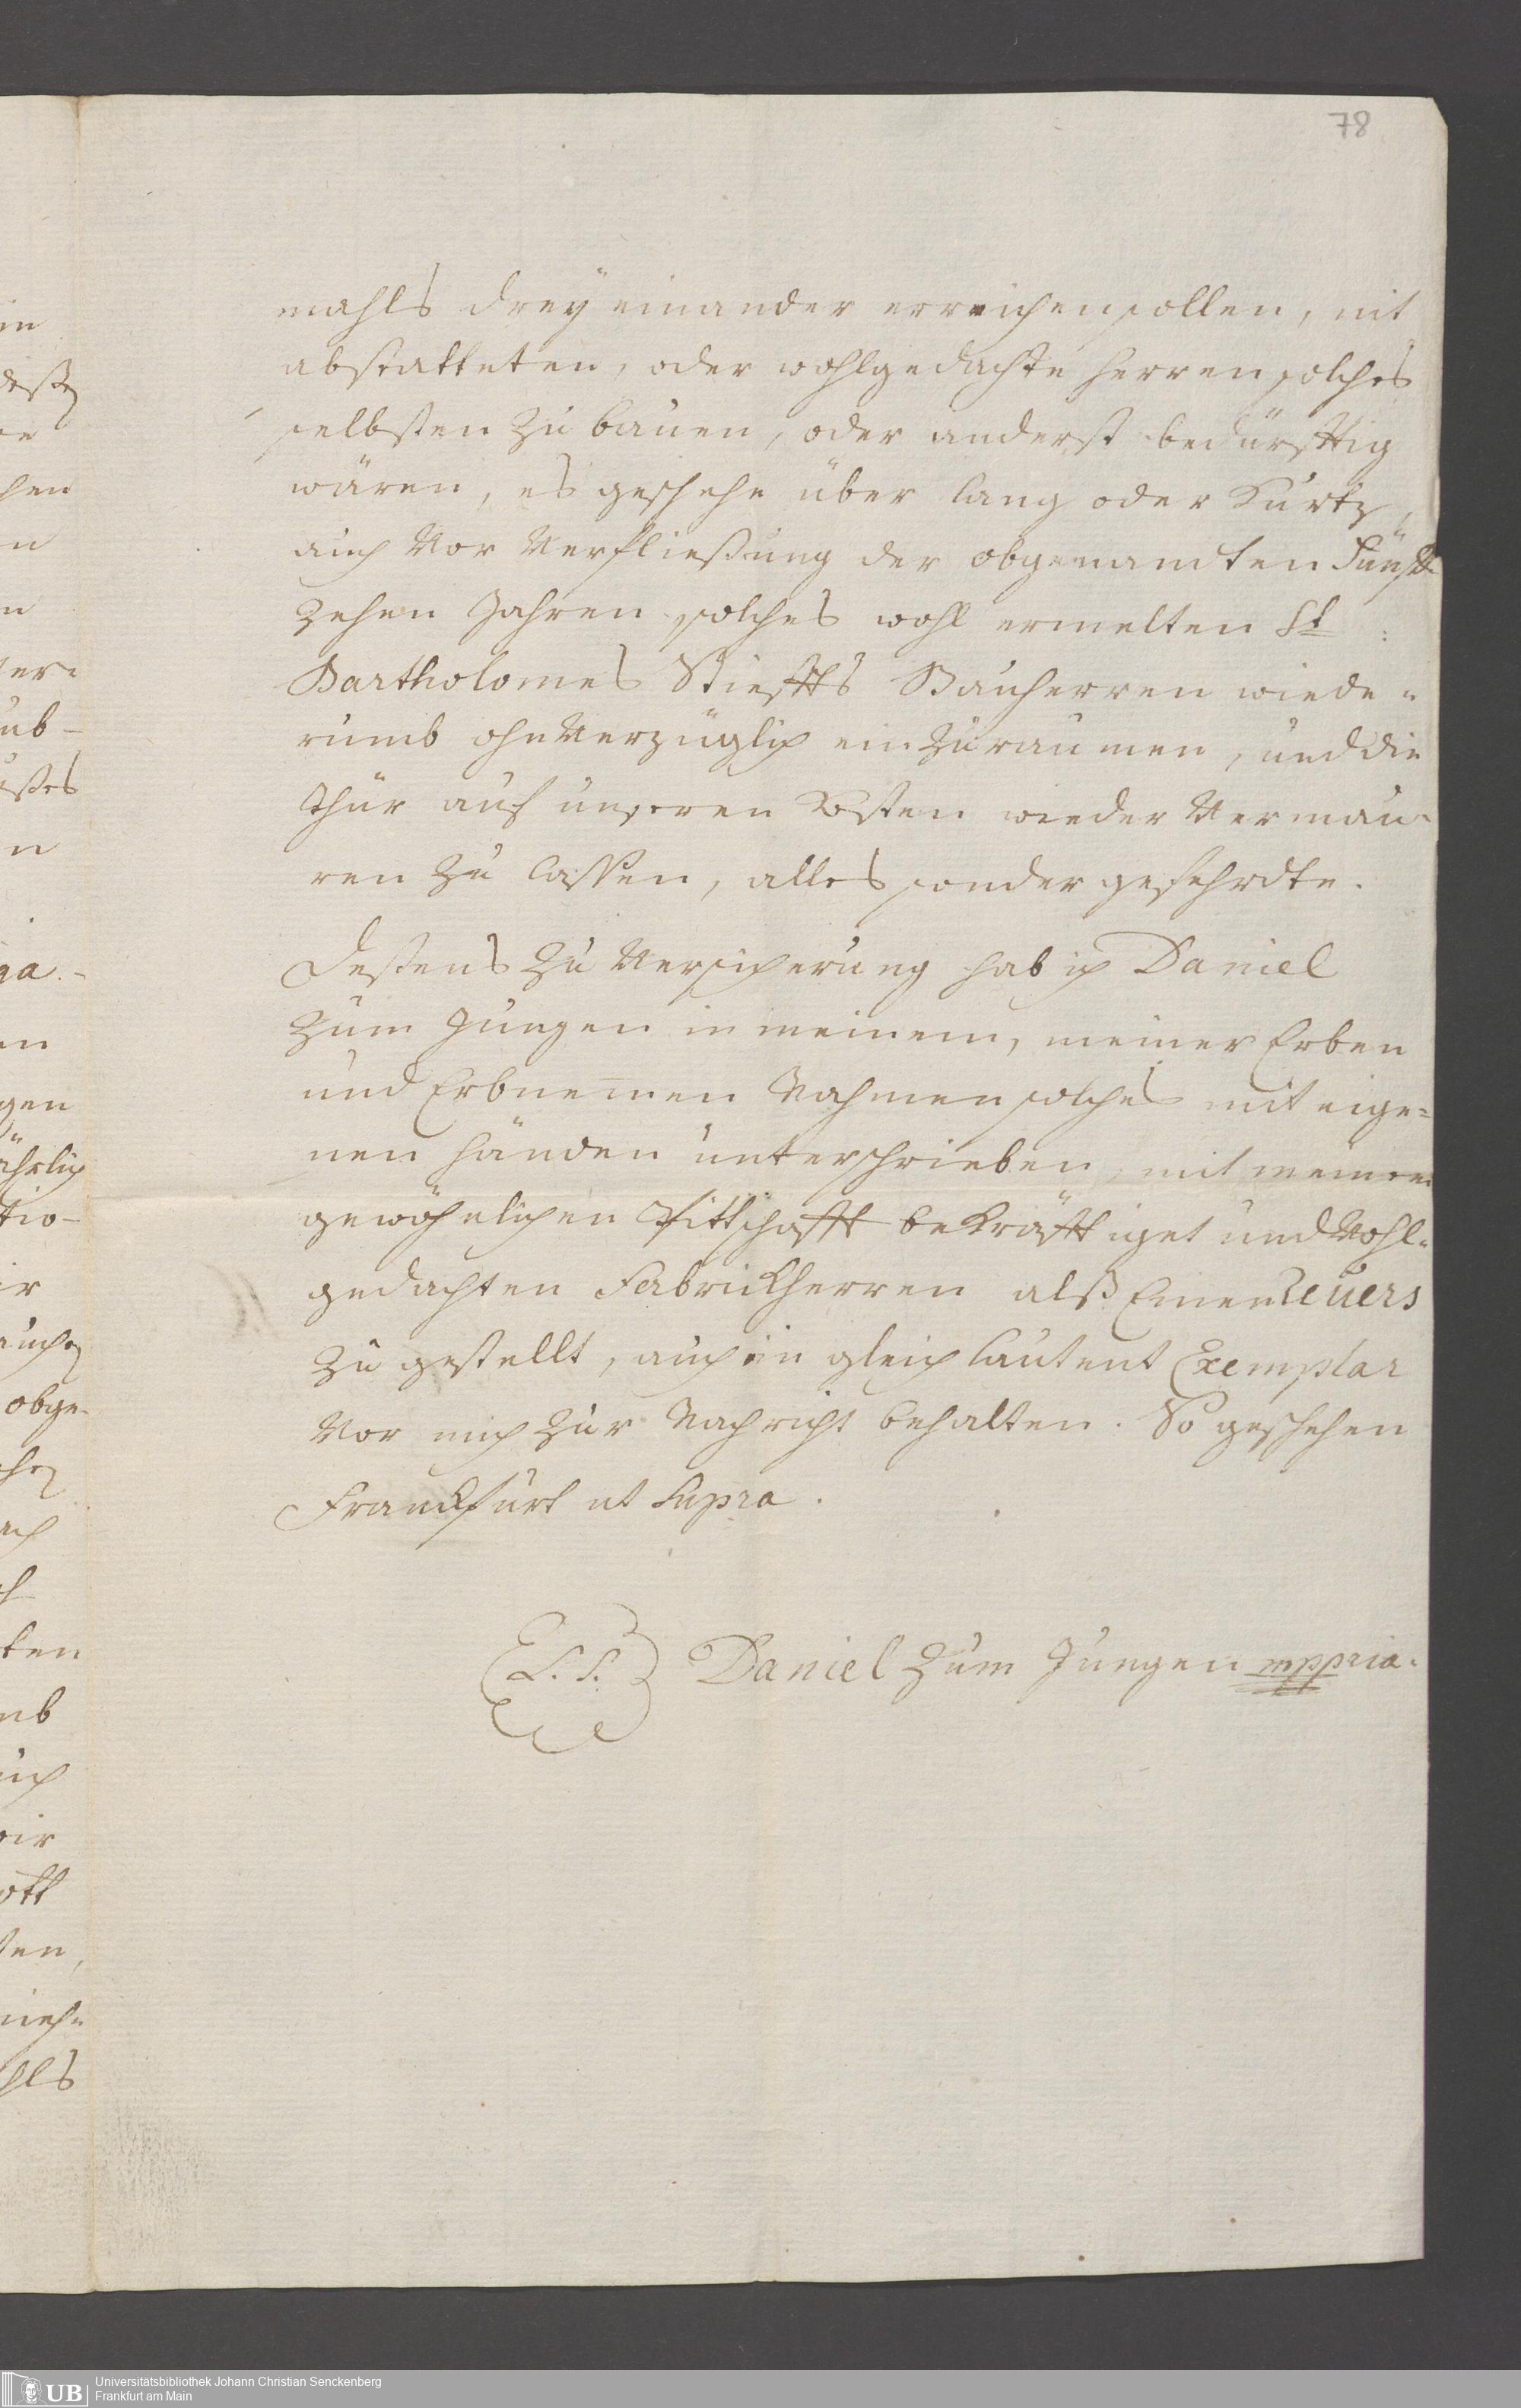 78
mahls dreÿ einander erreichen sollen, nit
abstatteten, oder wohlgedachte Herren solches
selbsten zu bauen, oder anderst bedürfftig
wären, es geschehe über lang oder kurtz,
auch vor verfliessung der obgenandten Fünff-
zehen Jahren solches wohl ermelten St:
Bartholomes Stieffts Bauherren wiede-
rumb ohnverzüglich einzuraumen, und die
Thür auf unseren Kosten wieder vermau-
ren zu lassen, alles sonder gefehrdte.
Dessens zu versicherung hab ich Daniel
zum Jungen in meinem, meiner Erben
und Erbnemen Nahmen solches mit eige-
nen händen unterschrieben, mit meinem
gewöhnlichen Pittschafft bekräfftiget und wohl-
gedachten Fabrickherren alß Einen Revers
zu gestellt, auch ein gleich lautent Exemplar
vor mich zur Nachricht behalten. So geschehen
Franckfurt ut Supra.
L. S. Daniel zum Jungen mppria.
in
dessen
hen
n
n
ver-
ub-
n
ga-
en
gen
ährlich
tio-
ir
obge-
ach
ten
mb
auch
wir
ott
sen,
hls
UB
Universitätsbibliothek Johann Christian Senckenberg
Frankfurt am Main